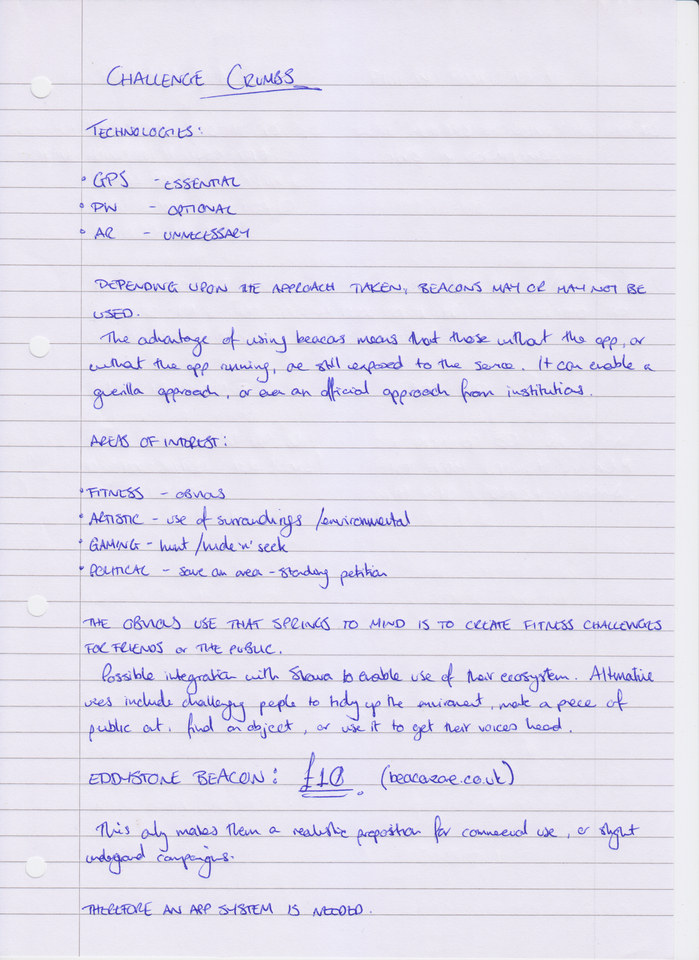 CHALLENGE CRUMBS
TECHNOLOGIES:
• GPS - ESSENTIAL
• PW - OPTIONAL
• AR - UNNECESSARY
DEPENDING UPON THE APPROACH TAKEN, BEACONS MAY OR MAY NOT BE
USED.
The advantage of using beacons means that those without the app, or
without the app running, are still exposed to the service. It can enable a
guerilla approach, or even an official approach from institutions.
AREAS OF INTEREST:
• FITNESS - OBVIOUS
• ARTISTIC - use of surroundings /environmental
• GAMING - hunt /hide 'n' seek
• POLITICAL - save an area - standing petition
THE OBVIOUS USE THAT SPRINGS TO MIND IS TO CREATE FITNESS CHALLENGES
FOR FRIENDS or THE PUBLIC.
Possible integration with Strava to enable use of their ecosystem. Alternative
uses include challenging people to tidy up the environment, make a piece of
public art, find an object, or use it to get their voices heard.
EDDYSTONE BEACON: £10. (beaconzone.co.uk)
This only makes them a realistic proposition for commercial use, or
underground campaigns.
THEREFORE AN APP SYSTEM IS NEEDED.